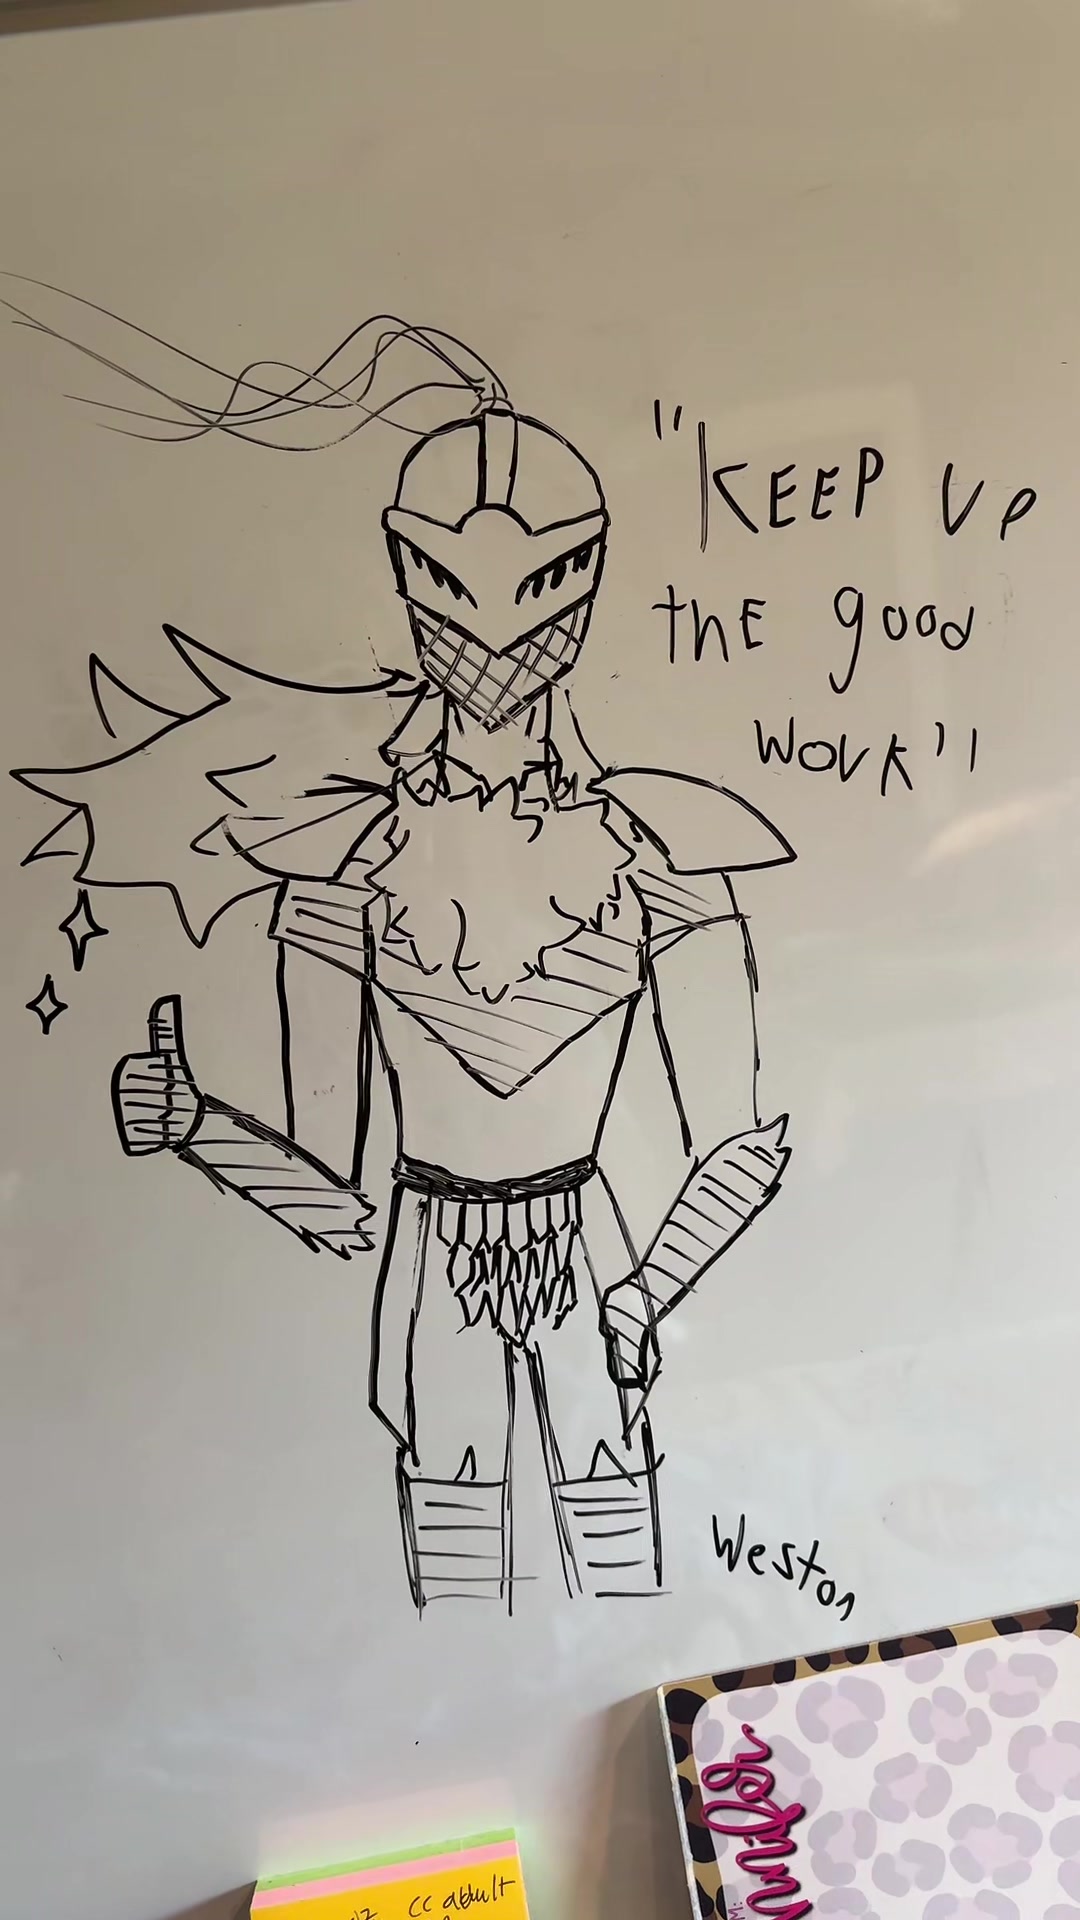 "KEEP UP
the good
work"
Weston
cc adult